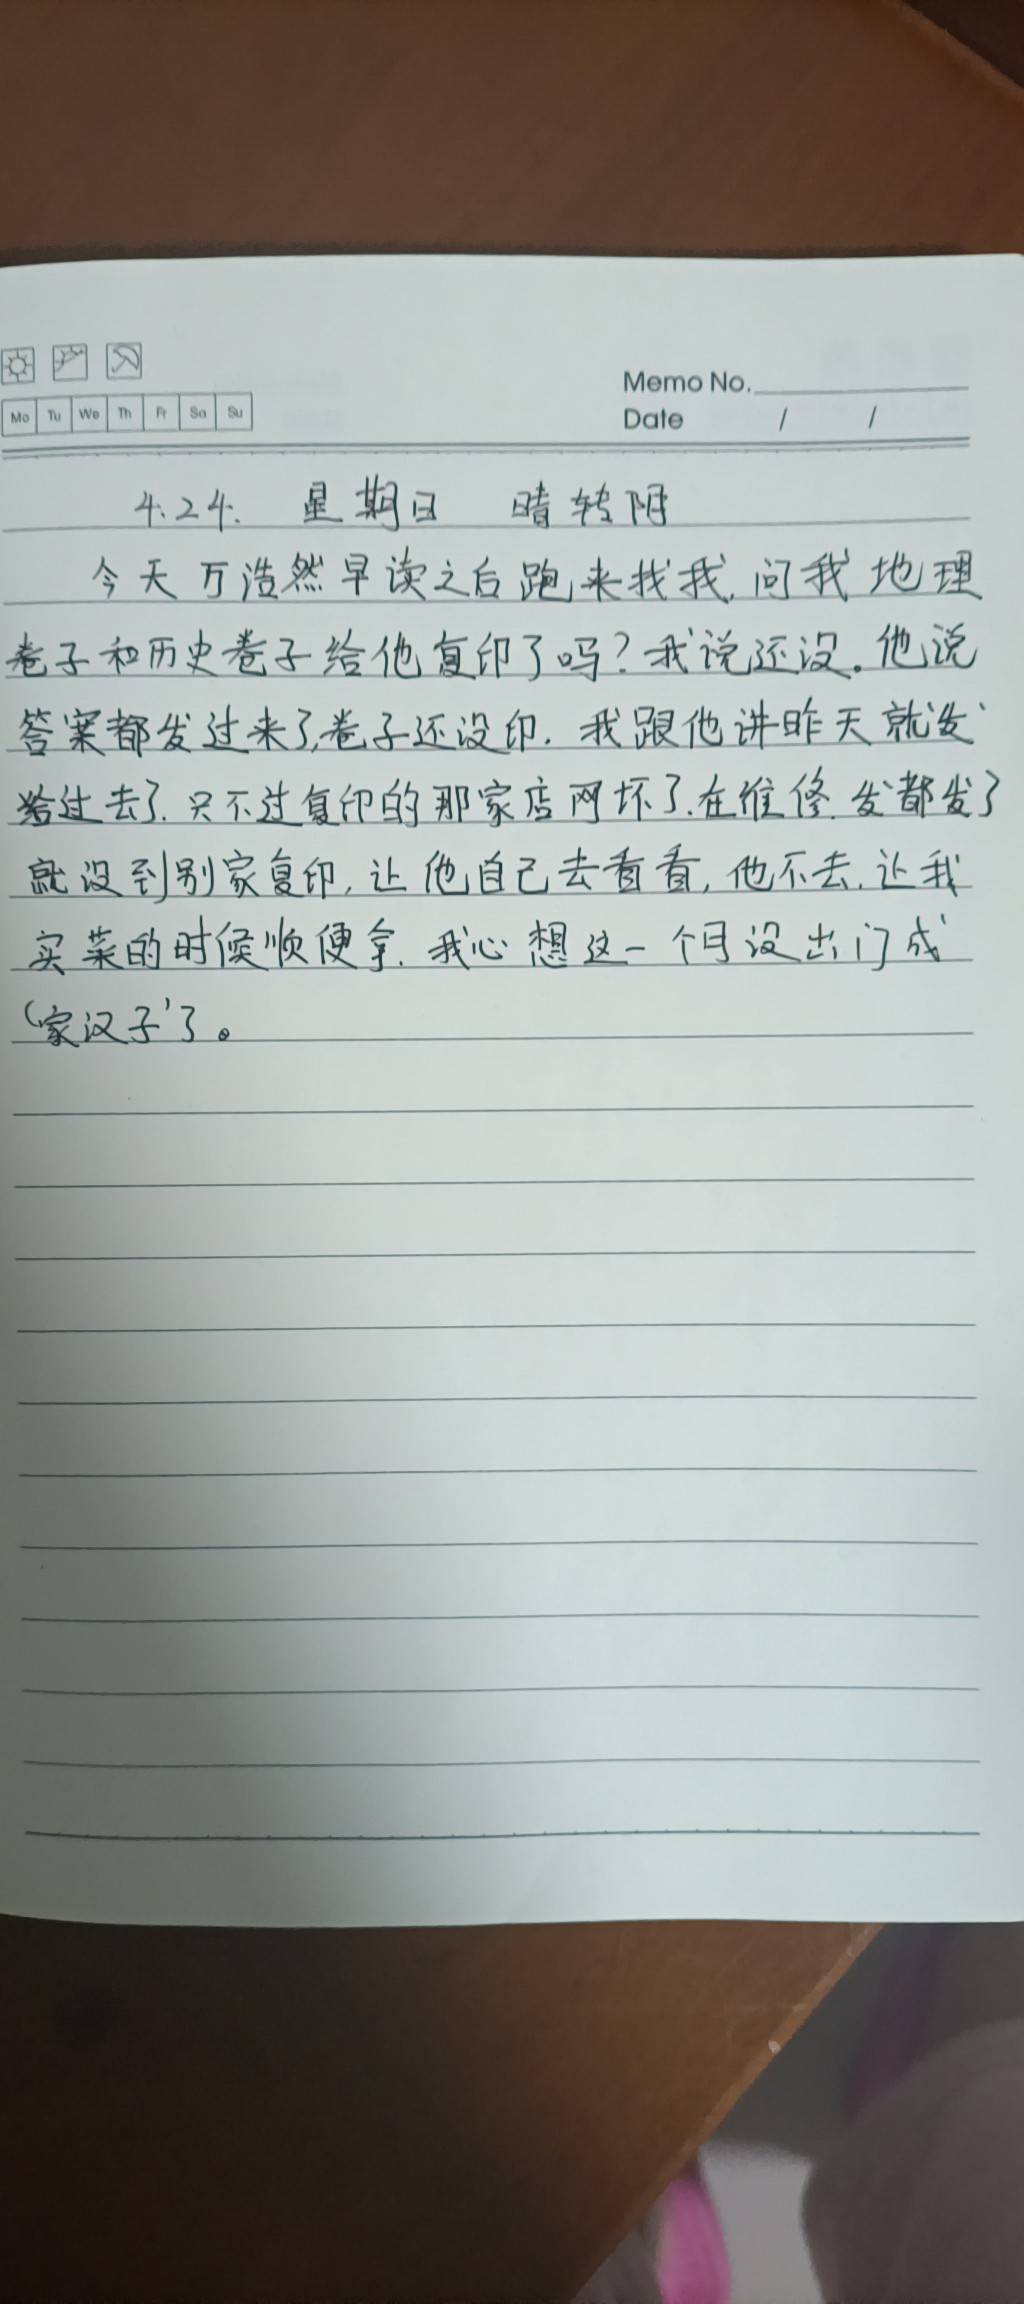 Memo No.
Mo Tu We Th Fr Sa Su
Date / /
4.24. 星期日 晴转阴
今天万浩然早读之后跑来找我,问我地理
卷子和历史卷子给他复印了吗?我说还没。他说
答案都发过来了,卷子还没印.我跟他讲昨天就发
给过去了.只不过复印的那家店网坏了.在维修.发都发了
就没到别家复印,让他自己去看看,他不去.让我
买菜的时候顺便拿.我心想这一个月没出门成
‘家汉子’了。